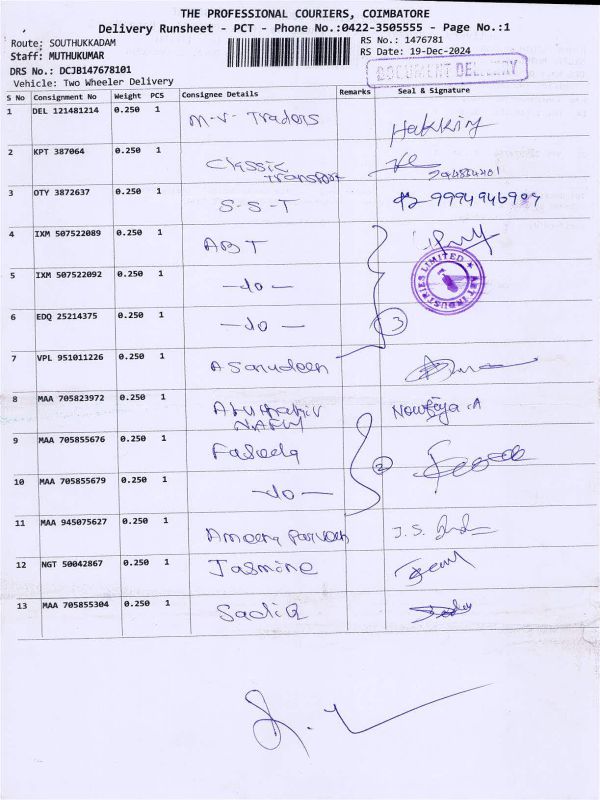 THE PROFESSIONAL COURIERS, COIMBATORE
Delivery Runsheet - PCT - Phone No.:0422-3505555 - Page No.:1
Route: SOUTHUKKADAM
Staff: MUTHUKUMAR
DRS No.: DCJB147678101
Vehicle: Two Wheeler Delivery
RS No.: 1476781
RS Date: 19-Dec-2024
DOCUMENT DELIVERY
S No Consignment No Weight PCS Consignee Details Remarks Seal & Signature
1 DEL 121481214 0.250 1 M.V. Traders
2 KPT 387064 0.250 1 Classic Transport
3 OTY 3872637 0.250 1 S-S-T 9994946904
4 IXM 507522089 0.250 1 ABT
ABT INDUSTRIES LIMITED
5 IXM 507522092 0.250 1 —do—
6 EDQ 25214375 0.250 1 —do— 3
7 VPL 951011226 0.250 1 Asarudeen
8 MAA 705823972 0.250 1 Nowfiya.A
9 MAA 705855676 0.250 1 Fareeda 2
10 MAA 705855679 0.250 1 —do—
11 MAA 945075627 0.250 1 Ameera Parveen J.S.
12 NGT 50042867 0.250 1 Jasmine
13 MAA 705855304 0.250 1 SadiQ